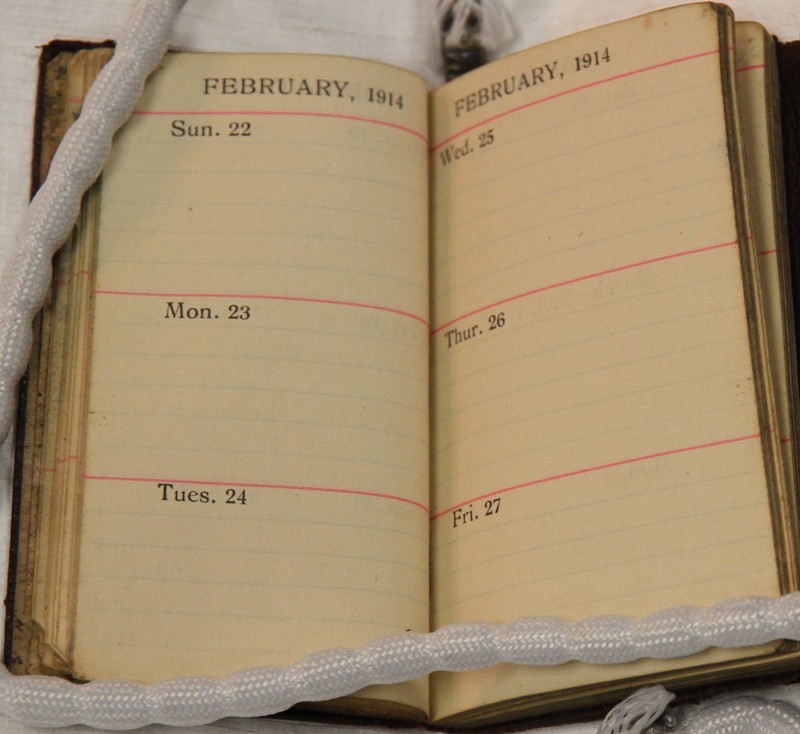 FEBRUARY, 1914
Sun. 22
Mon. 23
Tues. 24
FEBRUARY, 1914
Wed. 25
Thur. 26
Fri. 27